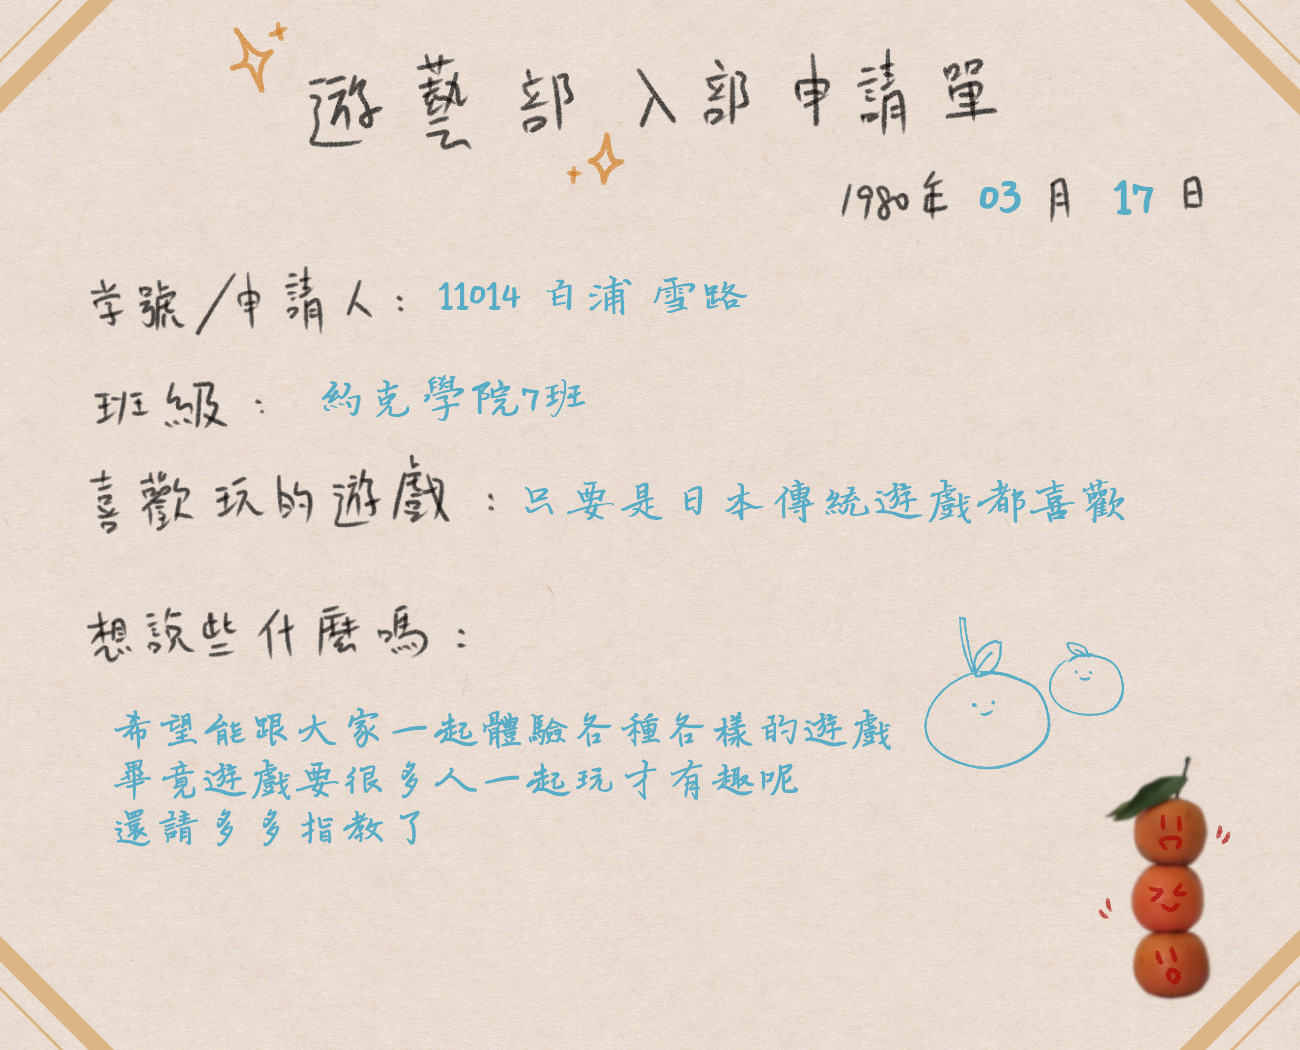 遊藝部入部申請單
1980年 03 月 17 日
学號/申請人: 11014 白浦 雪路
班級: 約克學院7班
喜歡玩的遊戲: 只要是日本傳統遊戲都喜歡
想說些什麼嗎:
希望能跟大家一起體驗各種各樣的遊戲
畢竟遊戲要很多人一起玩才有趣呢
還請多多指教了